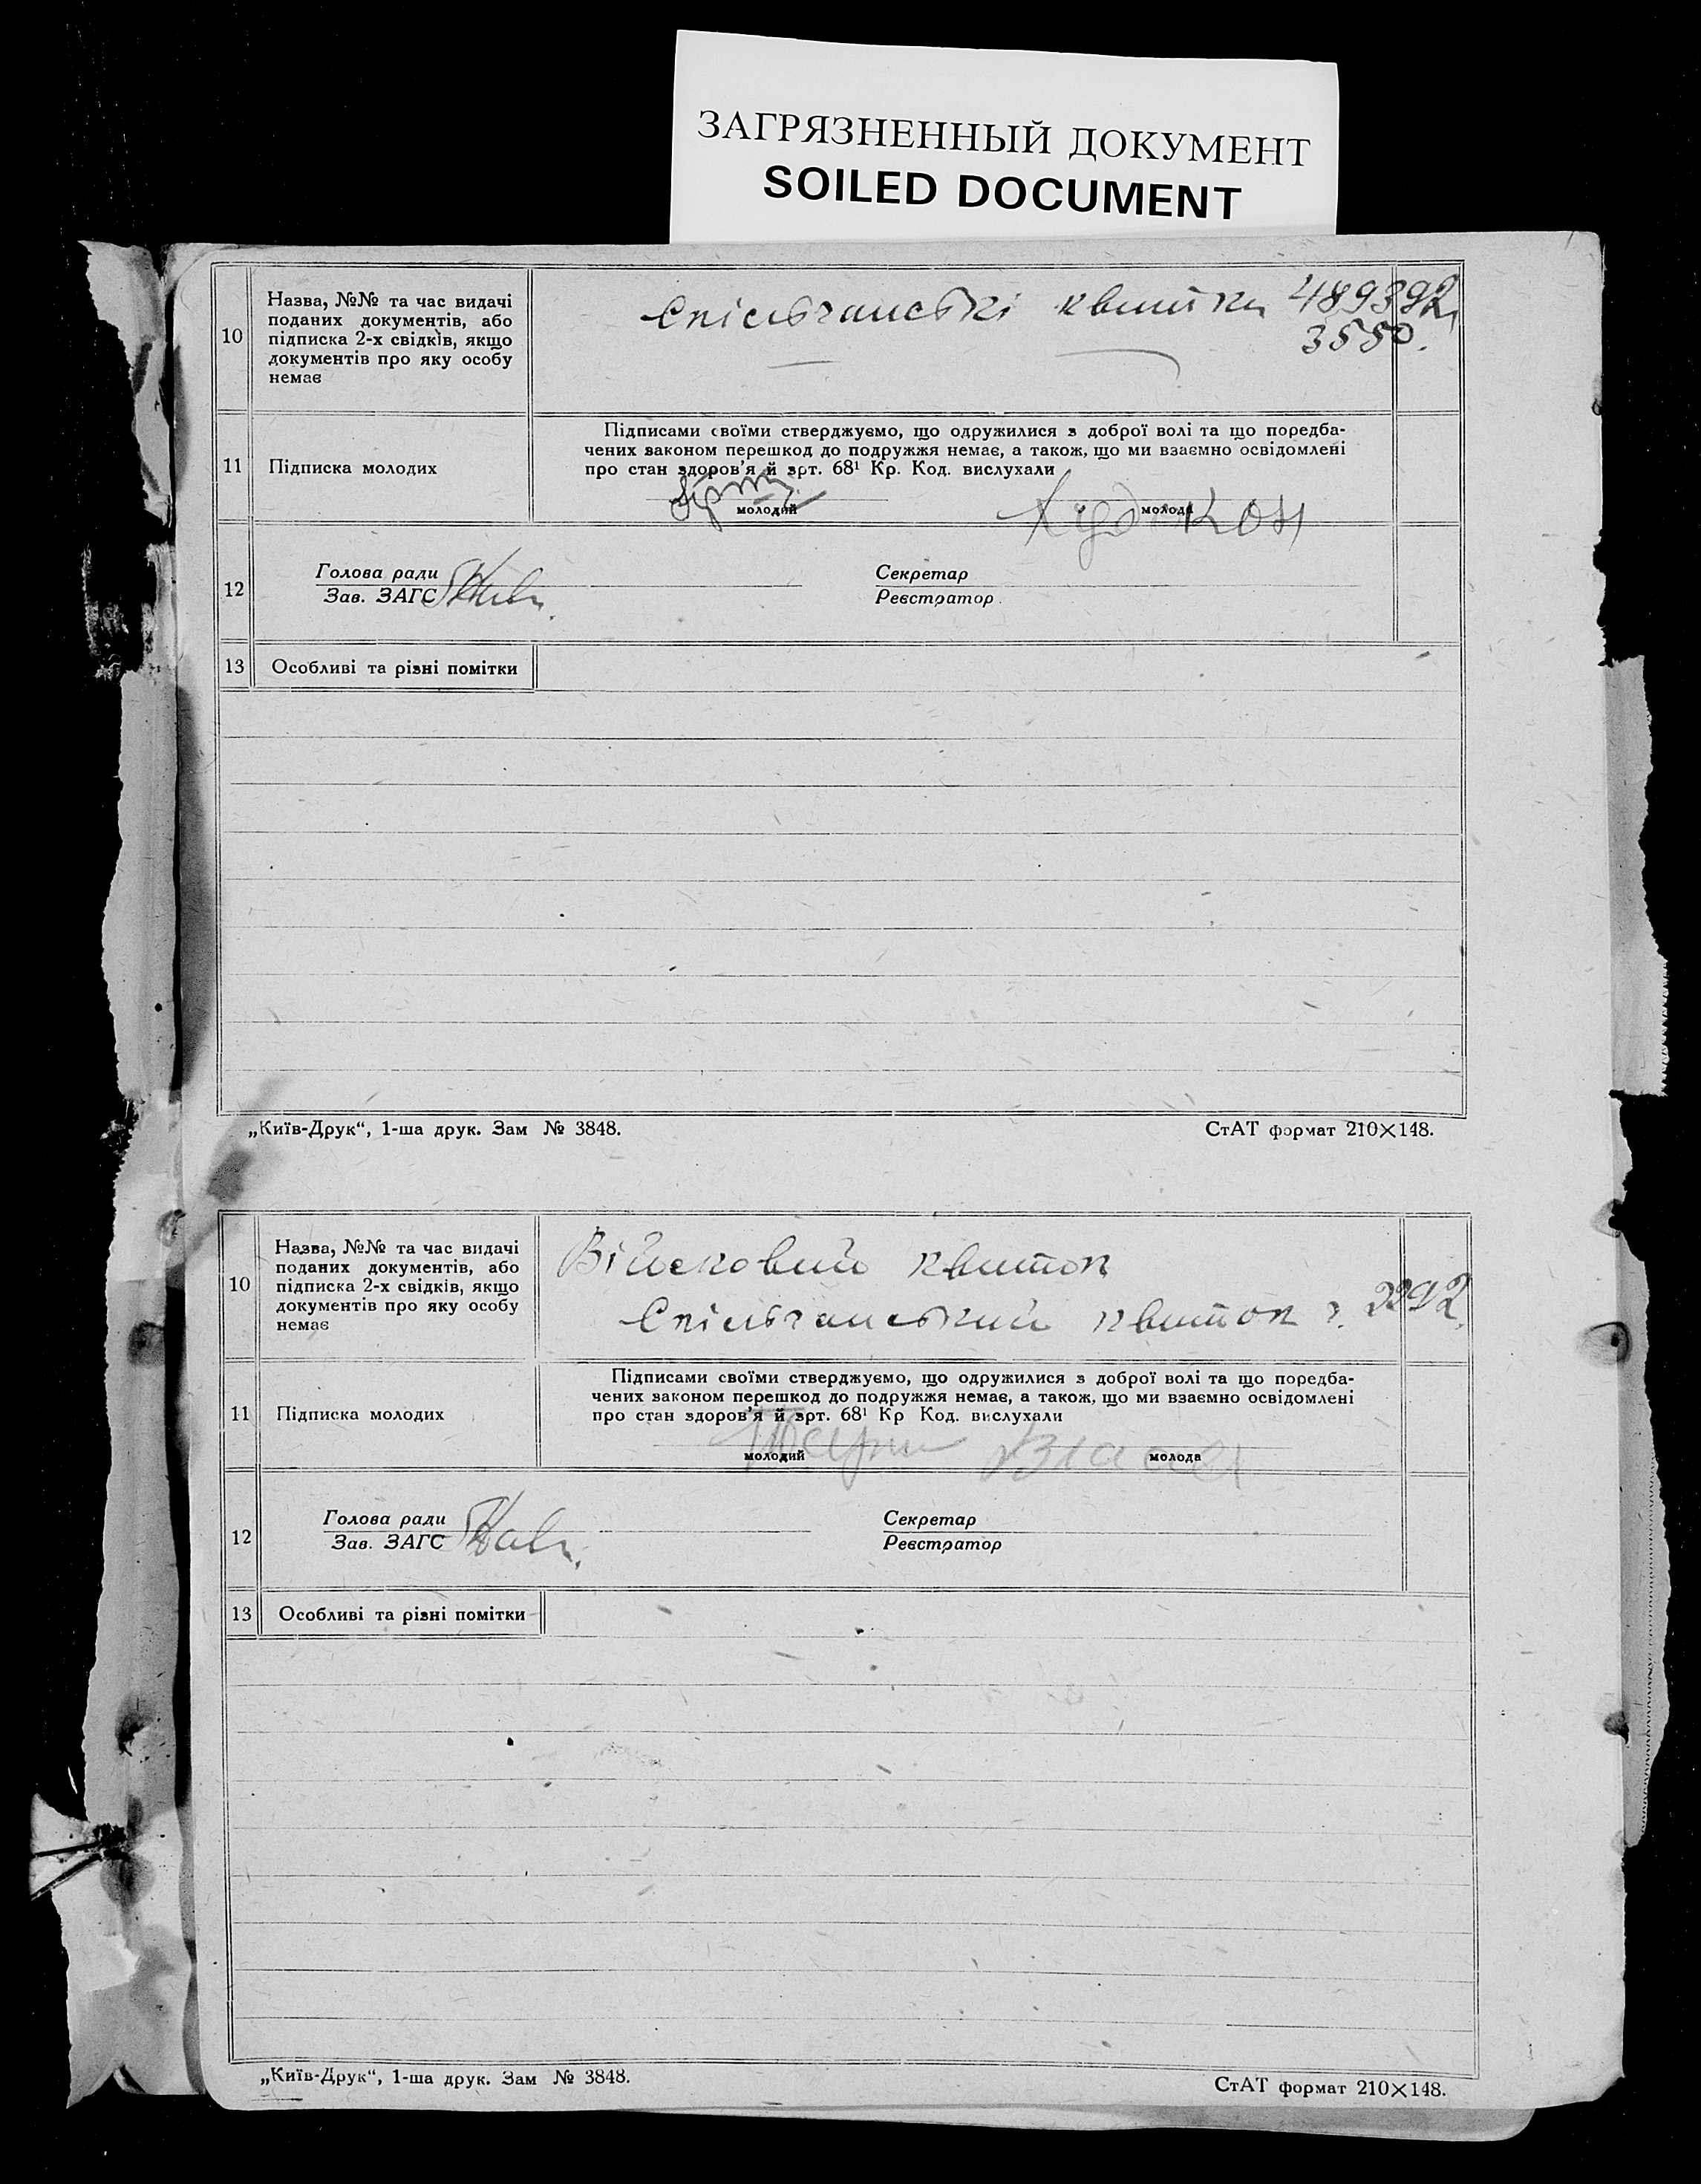 ЗАГРЯЗНЕННЫЙ ДОКУМЕНТ
SOILED DOCUMENT
10
Назва, №№ та час видачі
поданих документів, або
підписка 2-х свідків, якщо
документів про яку особу
немає
Спільчанські квитки 489392,
3550.
11
Підписка молодих
Підписами своїми стверджуємо, що одружилися з доброї волі та що поредба-
чених законом перешкод до подружжя немає, а також, що ми взаємно освідомлені
про стан здоров'я й арт. 68¹ Кр. Код. вислухали
молодий
молода
12
Голова ради
Зав. ЗАГС
Секретар
Реєстратор
13
Особливі та різні помітки
„Київ-Друк“, 1-ша друк. Зам № 3848.
СтАТ формат 210×148.
10
Назва, №№ та час видачі
поданих документів, або
підписка 2-х свідків, якщо
документів про яку особу
немає
Військовий квиток
Спільчанський квиток ч. 2292.
11
Підписка молодих
Підписами своїми стверджуємо, що одружилися з доброї волі та що поредба-
чених законом перешкод до подружжя немає, а також, що ми взаємно освідомлені
про стан здоров'я й арт. 68¹ Кр Код. вислухали
молодий
молода
12
Голова ради
Зав. ЗАГС
Секретар
Реєстратор
13
Особливі та різні помітки
„Київ-Друк“, 1-ша друк. Зам № 3848.
СтАТ формат 210×148.